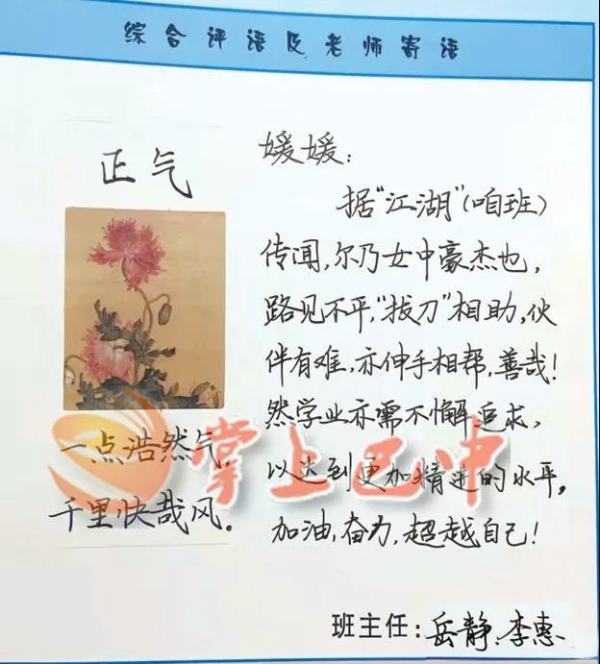 综合评语及老师寄语
正气
一点浩然气,
千里快哉风。
媛媛:
据“江湖”(咱班)
传闻,尔乃女中豪杰也,
路见不平,“拔刀”相助,伙
伴有难,亦伸手相帮,善哉!
然学业亦需不懈追求,
以达到更加精进的水平。
加油,奋力,超越自己!
班主任:岳静、李惠
掌上巴中